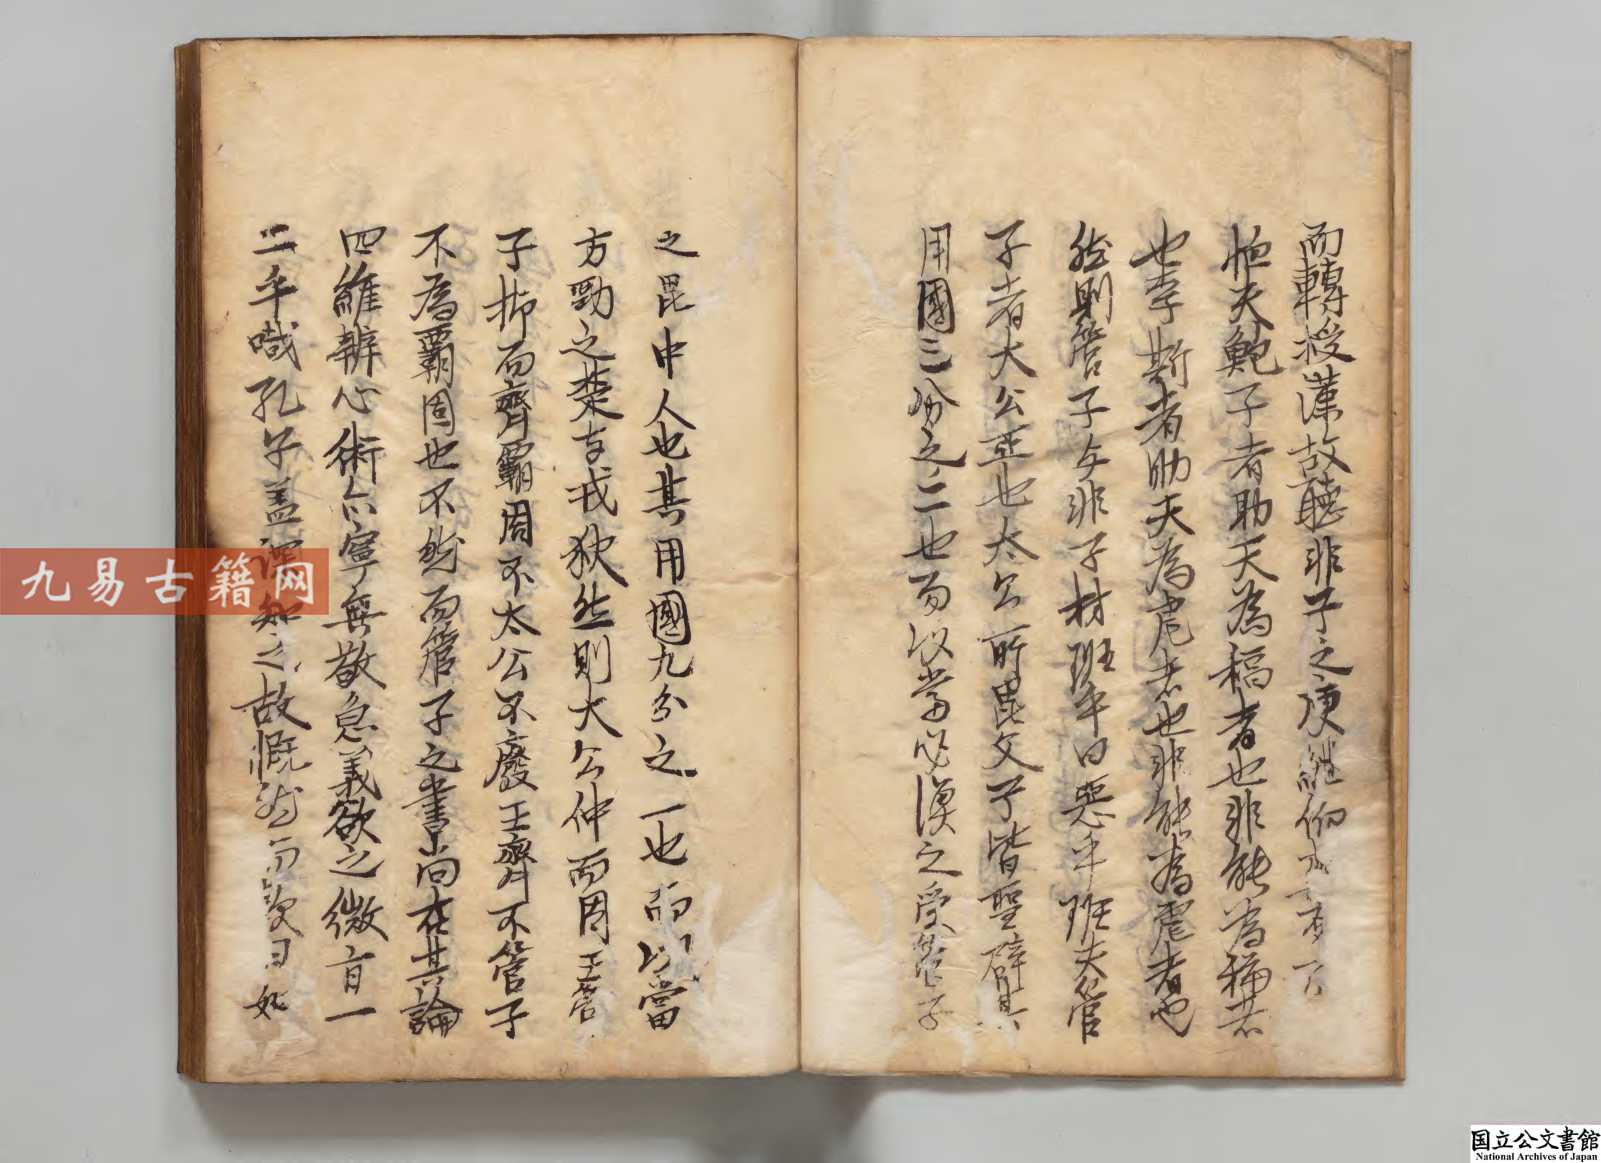 而轉授漢故聽非子之
恒天鮑子者助天為稿者也非能為稿者
也李斯者助天為𠅘者也非能為𠅘者也
然則管子与非子材班乎曰惡乎班夫管
子者大公亞也太公所毘文子皆聖辟其
用國三分之二也而以當必漢之受管子
之毘中人也其用國九分之一也而以當
方勁之楚与戎狄然則大公仲而周王管
子抑而齊霸周不太公不廢王齊不管子
不為霸固也不然而管子之書尚在其論
四維辨心術亦寧無敬怠義欲之微言一
二乎哉孔子盖深知之故慨然而歎曰如
九易古籍网
国立公文書館
National Archives of Japan